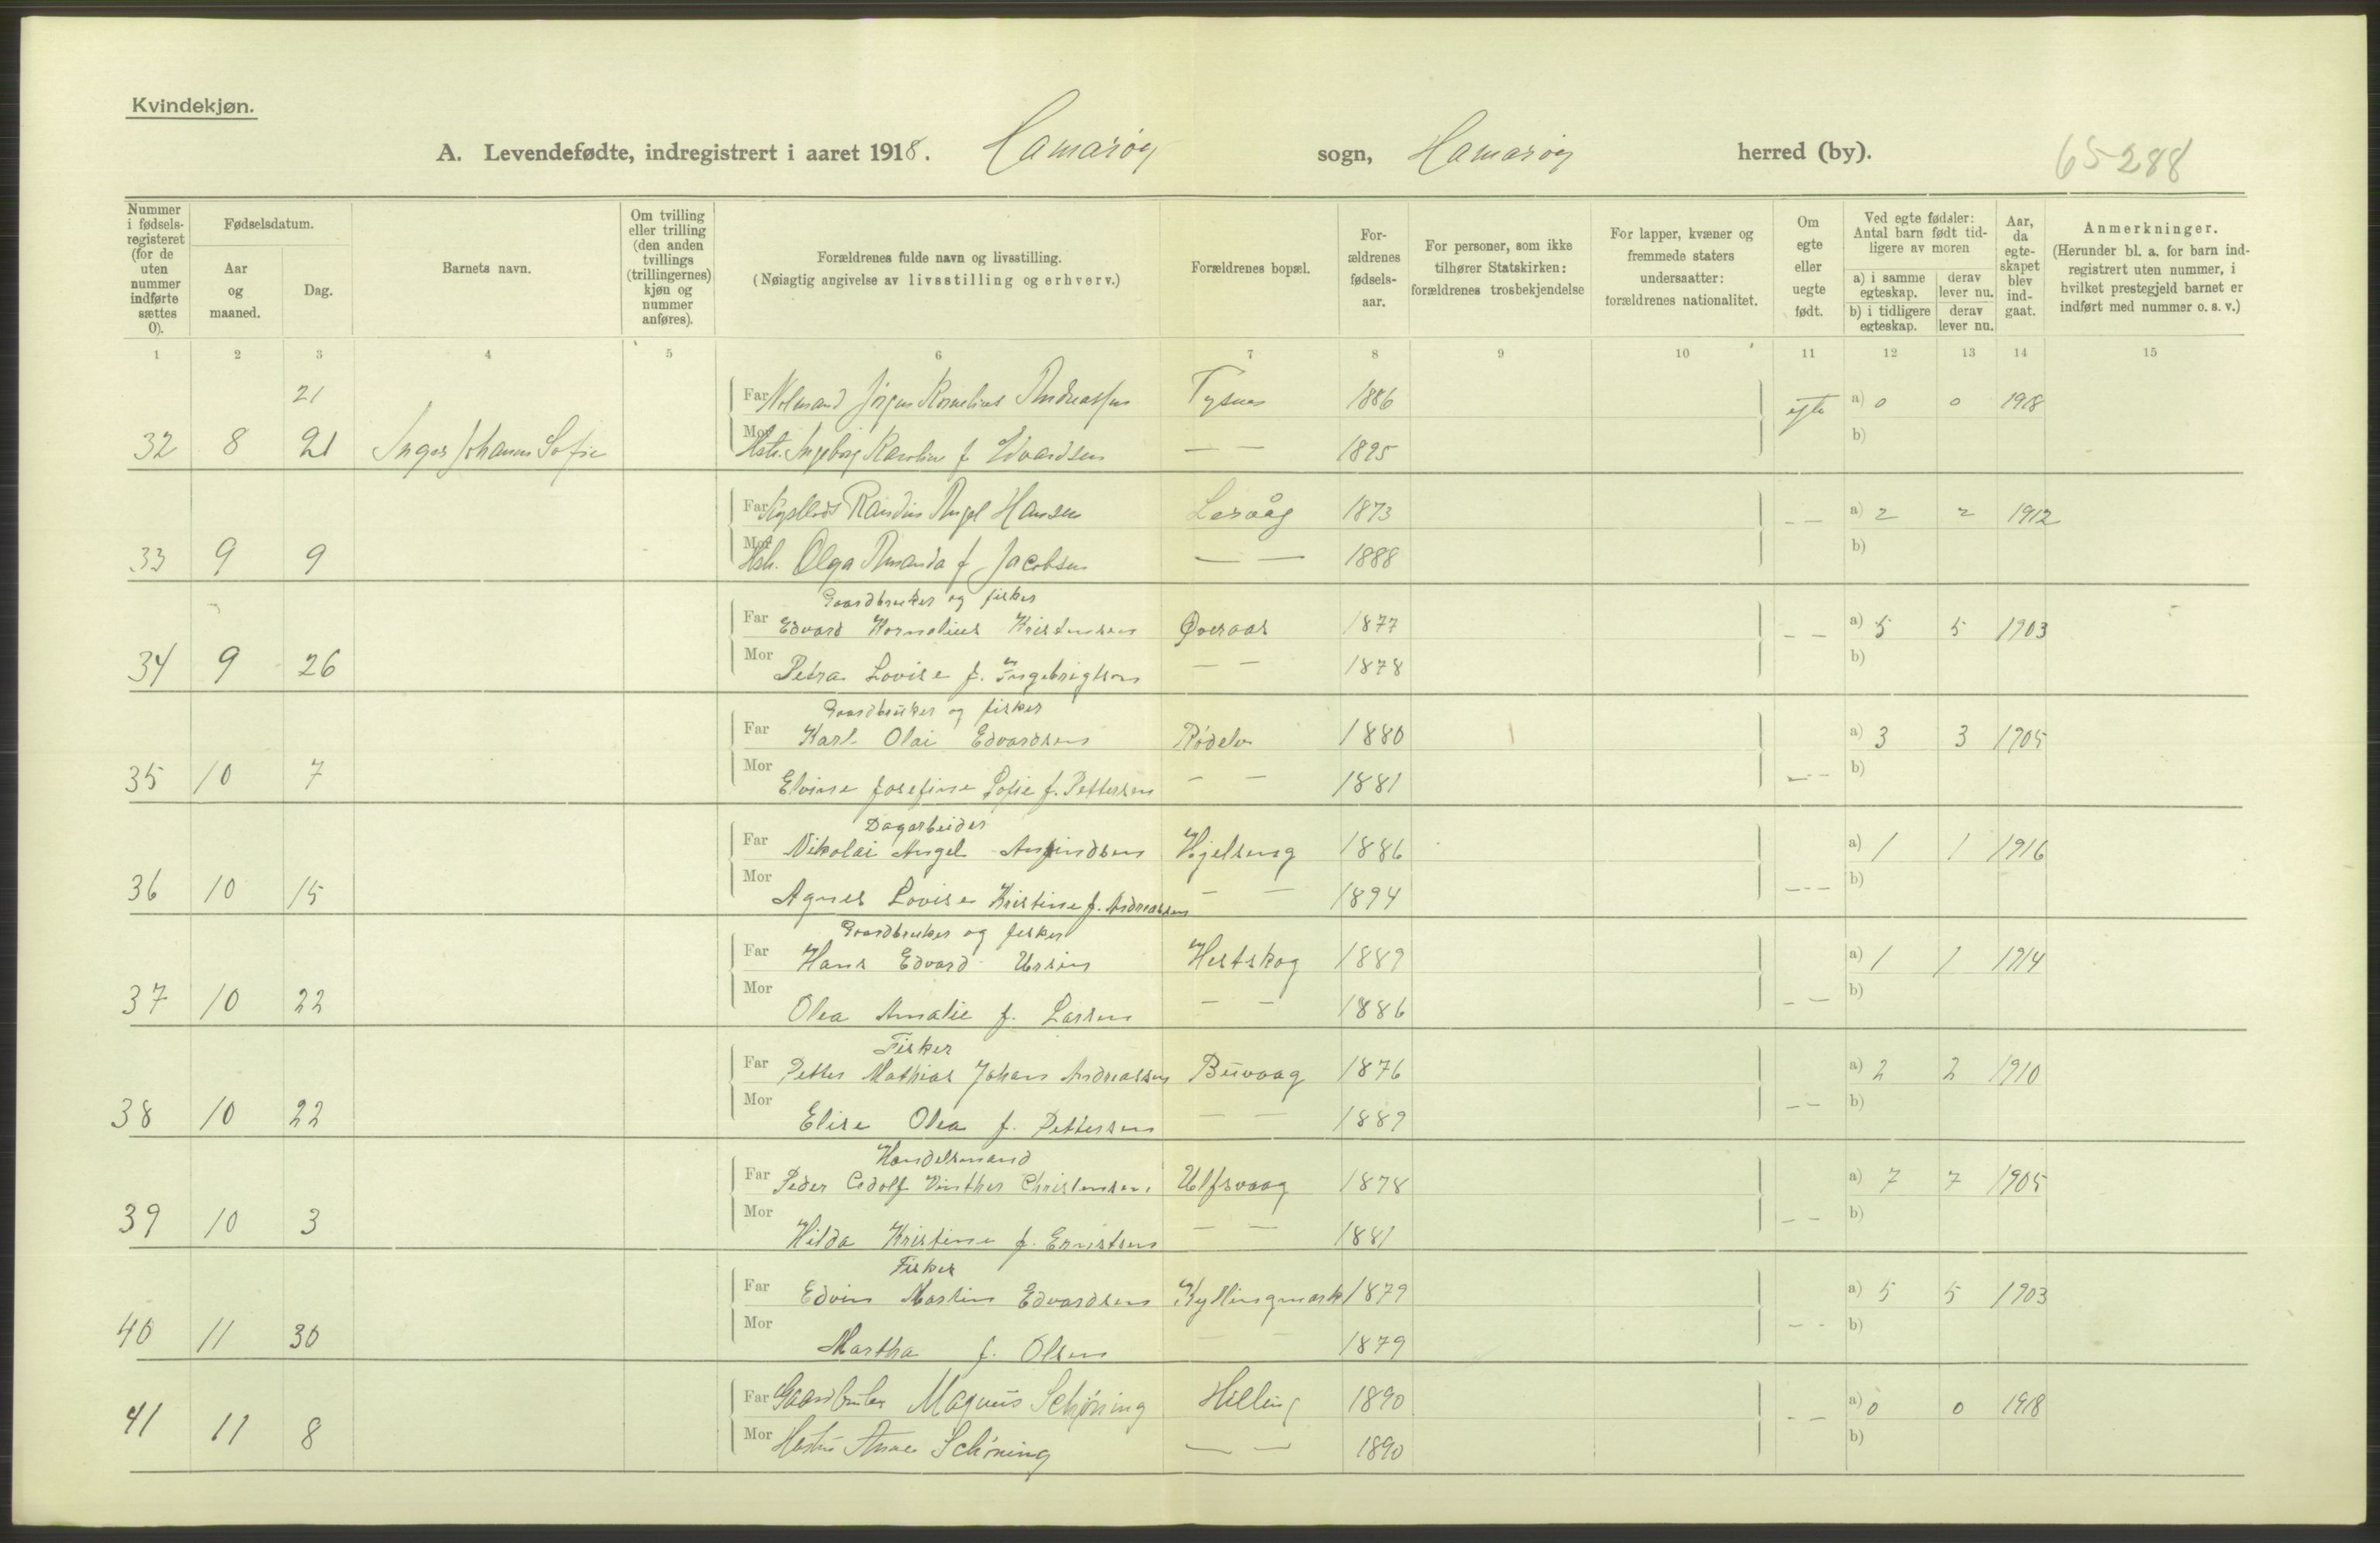 Kvindekjøn.
A. Levendefødte, indregistrert i aaret 1918. Hamarøy sogn, Hamarøy herred (by). 65288
Nummer i fødsels-registeret (for de uten nummer indførte sættes 0).
Fødselsdatum.
Aar og maaned.
Dag.
Barnets navn.
Om tvilling eller trilling (den anden tvillings (trillingernes) kjøn og nummer anføres).
Forældrenes fulde navn og livsstilling.
(Nøiagtig angivelse av livsstilling og erhverv.)
Forældrenes bopæl.
For-ældrenes fødsels-aar.
For personer, som ikke tilhører Statskirken: forældrenes trosbekjendelse
For lapper, kvæner og fremmede staters undersaatter: forældrenes nationalitet.
Om egte eller uegte født.
Ved egte fødsler: Antal barn født tid-ligere av moren
a) i samme egteskap. derav lever nu.
b) i tidligere egteskap. derav lever nu.
Aar, da egte-skapet blev ind-gaat.
Anmerkninger.
(Herunder bl. a. for barn ind-registrert uten nummer, i hvilket prestegjeld barnet er indført med nummer o. s. v.)
1 2 3 4 5 6 7 8 9 10 11 12 13 14 15
21 Far Jørgen Kornelius Andreassen Tysnes 1886 egte a) 0 0 1918
32 8 21 Inger Johanne Sofie Mor Hstr. Ingeborg Karoline f Edvardsen — — 1895 b)
Far Randin Angel Hansen Lesaåg 1873 — — a) 2 2 1912
33 9 9 Mor Hstr. Olga Amanda f Jacobsen — — 1888 b)
Gaardbruker og fisker
Far Edvard Kornelius Kristensen Øveraas 1877 — — a) 5 5 1903
34 9 26 Mor Petra Lovise f. Ingebrigtsen — — 1878 b)
Gaardbruker og fisker
Far Karl Olai Edvardsen Rødelv 1880 a) 3 3 1905
35 10 7 Mor Elvine Josefine Sofie f. Pettersen — — 1881 — — b)
Dagarbeider
Far Nikolai Angel Amundsen 1886 a) 1 1 1916
36 10 15 Mor Agnes Lovise Kristine f. Andreassen — — 1894 — — b)
Gaardbruker og fisker
Far Hans Edvard Ursin Hestskog 1889 a) 1 1 1914
37 10 22 Mor Olea Amalie f. Larsen — — 1886 — — b)
Fisker
Far Petter Mathias Johan Andreassen Buvaag 1876 a) 2 2 1910
38 10 22 Mor Elise Olea f. Pettersen — — 1889 — — b)
Handelsmand
Far Peder Adolf Vinther Christensen Ulfsvaag 1878 a) 7 7 1905
39 10 3 Mor Hilda Kristine f. Ernstsen — — 1881 — — b)
Fisker
Far Edvin Martin Edvardsen Kyllingmark 1879 a) 5 5 1903
40 11 30 Mor Martha f. Olsen — — 1879 — — b)
Far Gaardbruker Magnus Schjöning Hilling 1890 — — a) 0 0 1918
41 11 8 Mor Hustru Anne Schöning — — 1890 b)